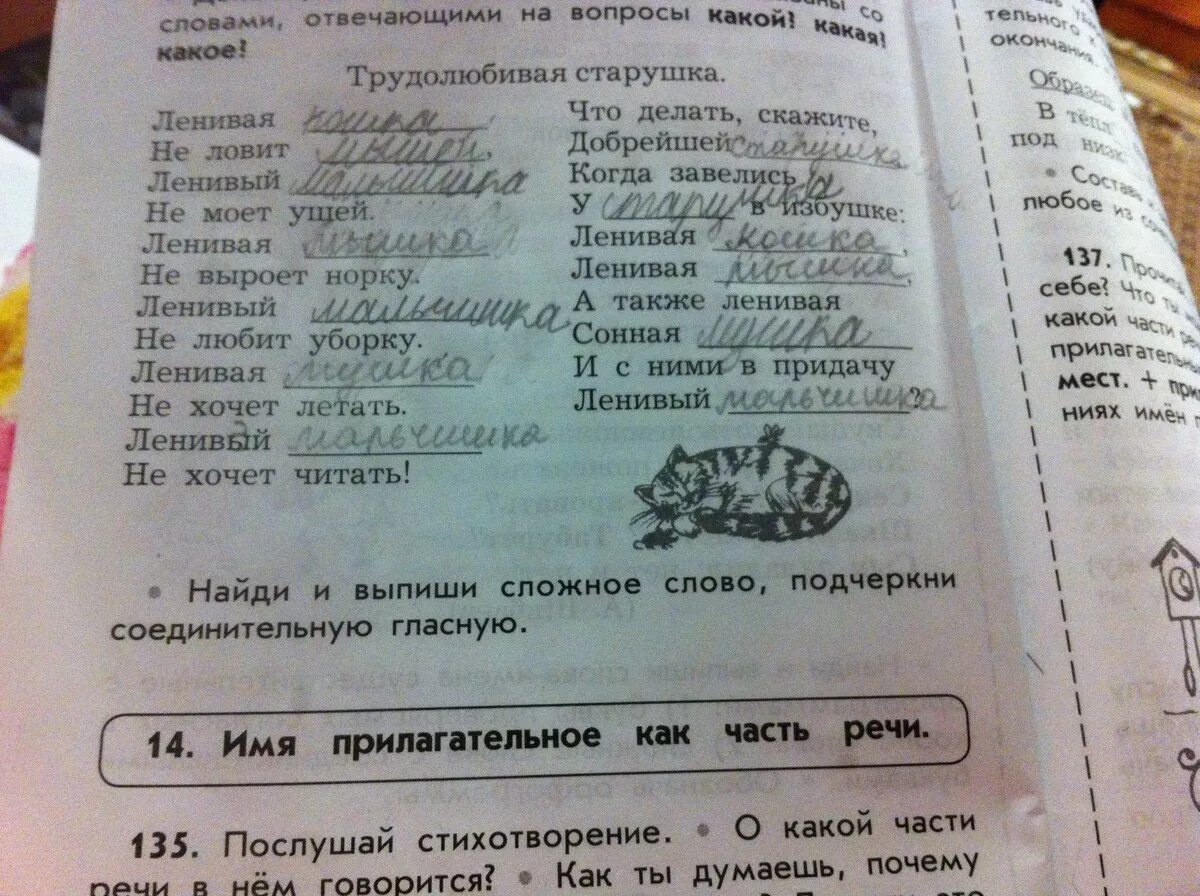 словами, отвечающими на вопросы какой? какая?
какое?
Трудолюбивая старушка.
Ленивая кошка
Не ловит мышей,
Ленивый мальчишка
Не моет ушей.
Ленивая мышка
Не выроет норку.
Ленивый мальчишка
Не любит уборку.
Ленивая мушка
Не хочет летать.
Ленивый мальчишка
Не хочет читать!
Что делать, скажите,
Добрейшей старушка
Когда завелись
У старушка в избушке:
Ленивая кошка,
Ленивая мышка,
А также ленивая
Сонная мушка
И с ними в придачу
Ленивый мальчишка?
• Найди и выпиши сложное слово, подчеркни
соединительную гласную.
14. Имя прилагательное как часть речи.
135. Послушай стихотворение. • О какой части
речи в нём говорится? • Как ты думаешь, почему
тельного
окончания
Образец
В тёпл
под низк
• Состав
любое из
137. Прочи
себе? Что ты
какой части ре
прилагательн
мест. + при
ниях имён